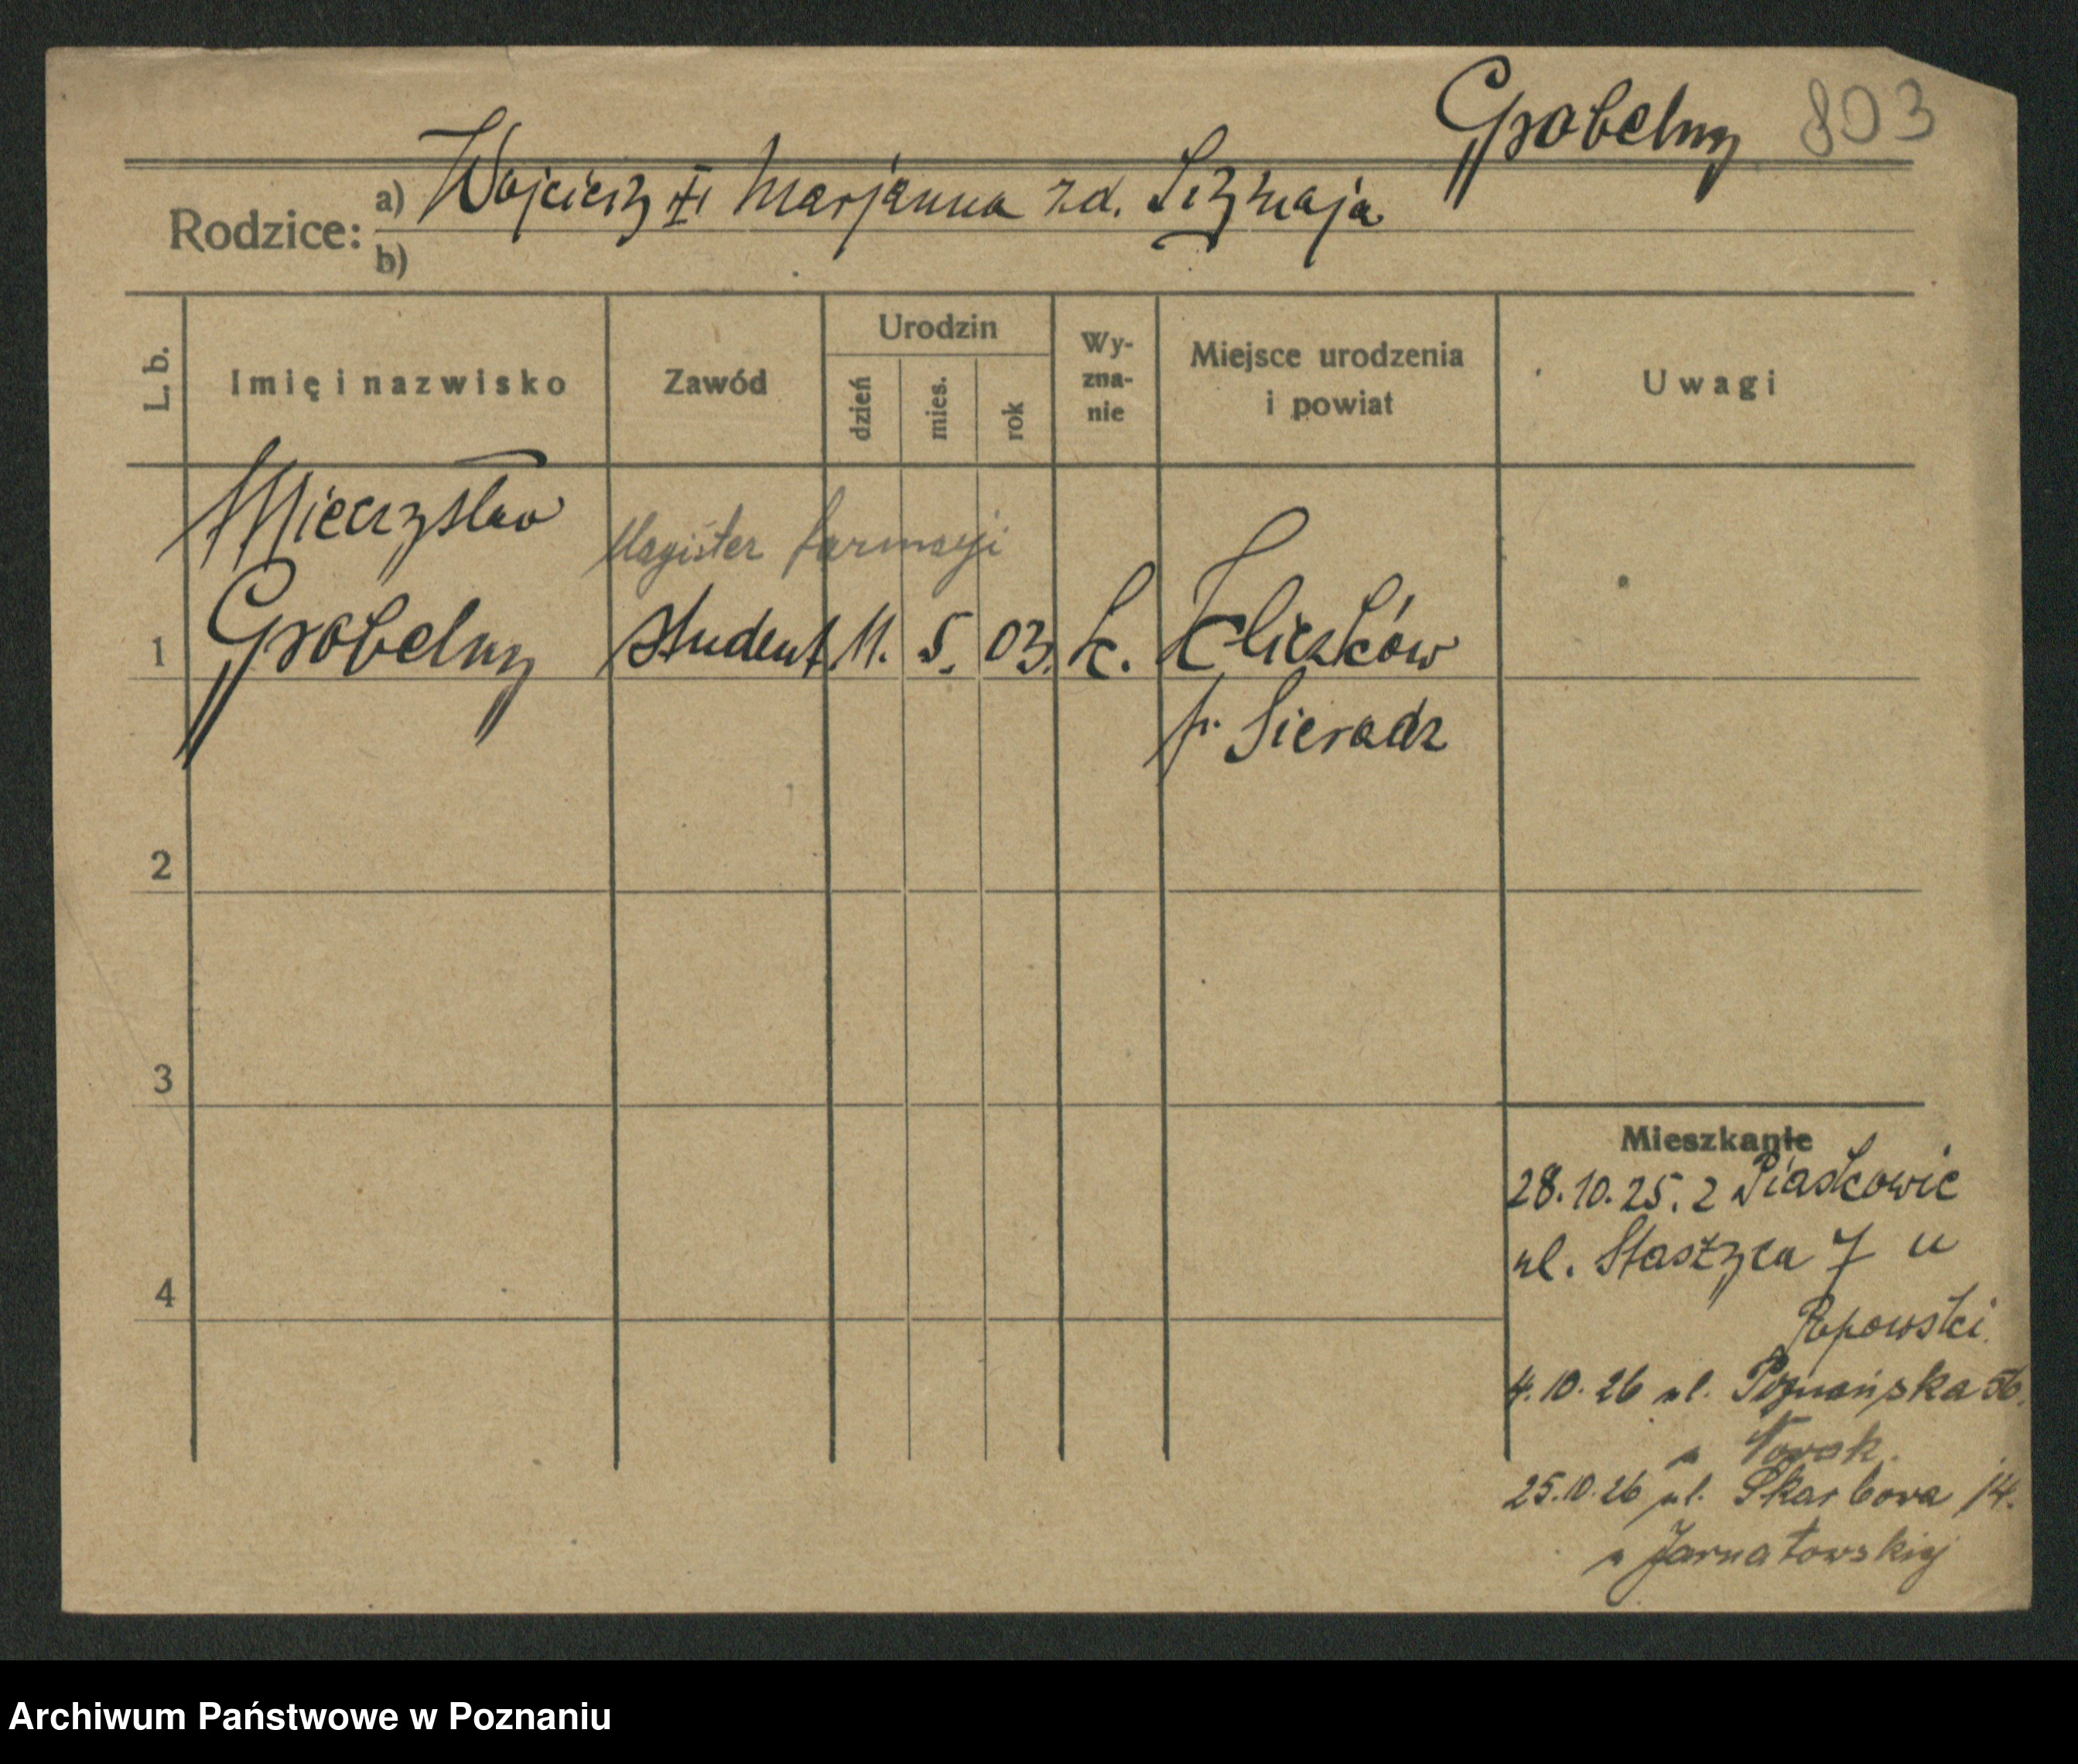 Grobelny 803
Rodzice: a) Wojciech Marjanna zd.
b)
L. b. Imię i nazwisko Zawód Urodzin dzień mies. rok Wy-zna-nie Miejsce urodzenia i powiat Uwagi
Mieczysław
Magister farmacji
1 Grobelny student 11. 5. 03. k. Kliczków
p. Sieradz
2
3
4
Mieszkanie
28.10.25. z Piaskowic
ul. Staszyca 7 u
Popowski
4.10.26 ul. Poznańska 56.
u Nowak.
25.10.26 ul. Skarbowa 14.
u Jarnatowskiej
Archiwum Państwowe w Poznaniu